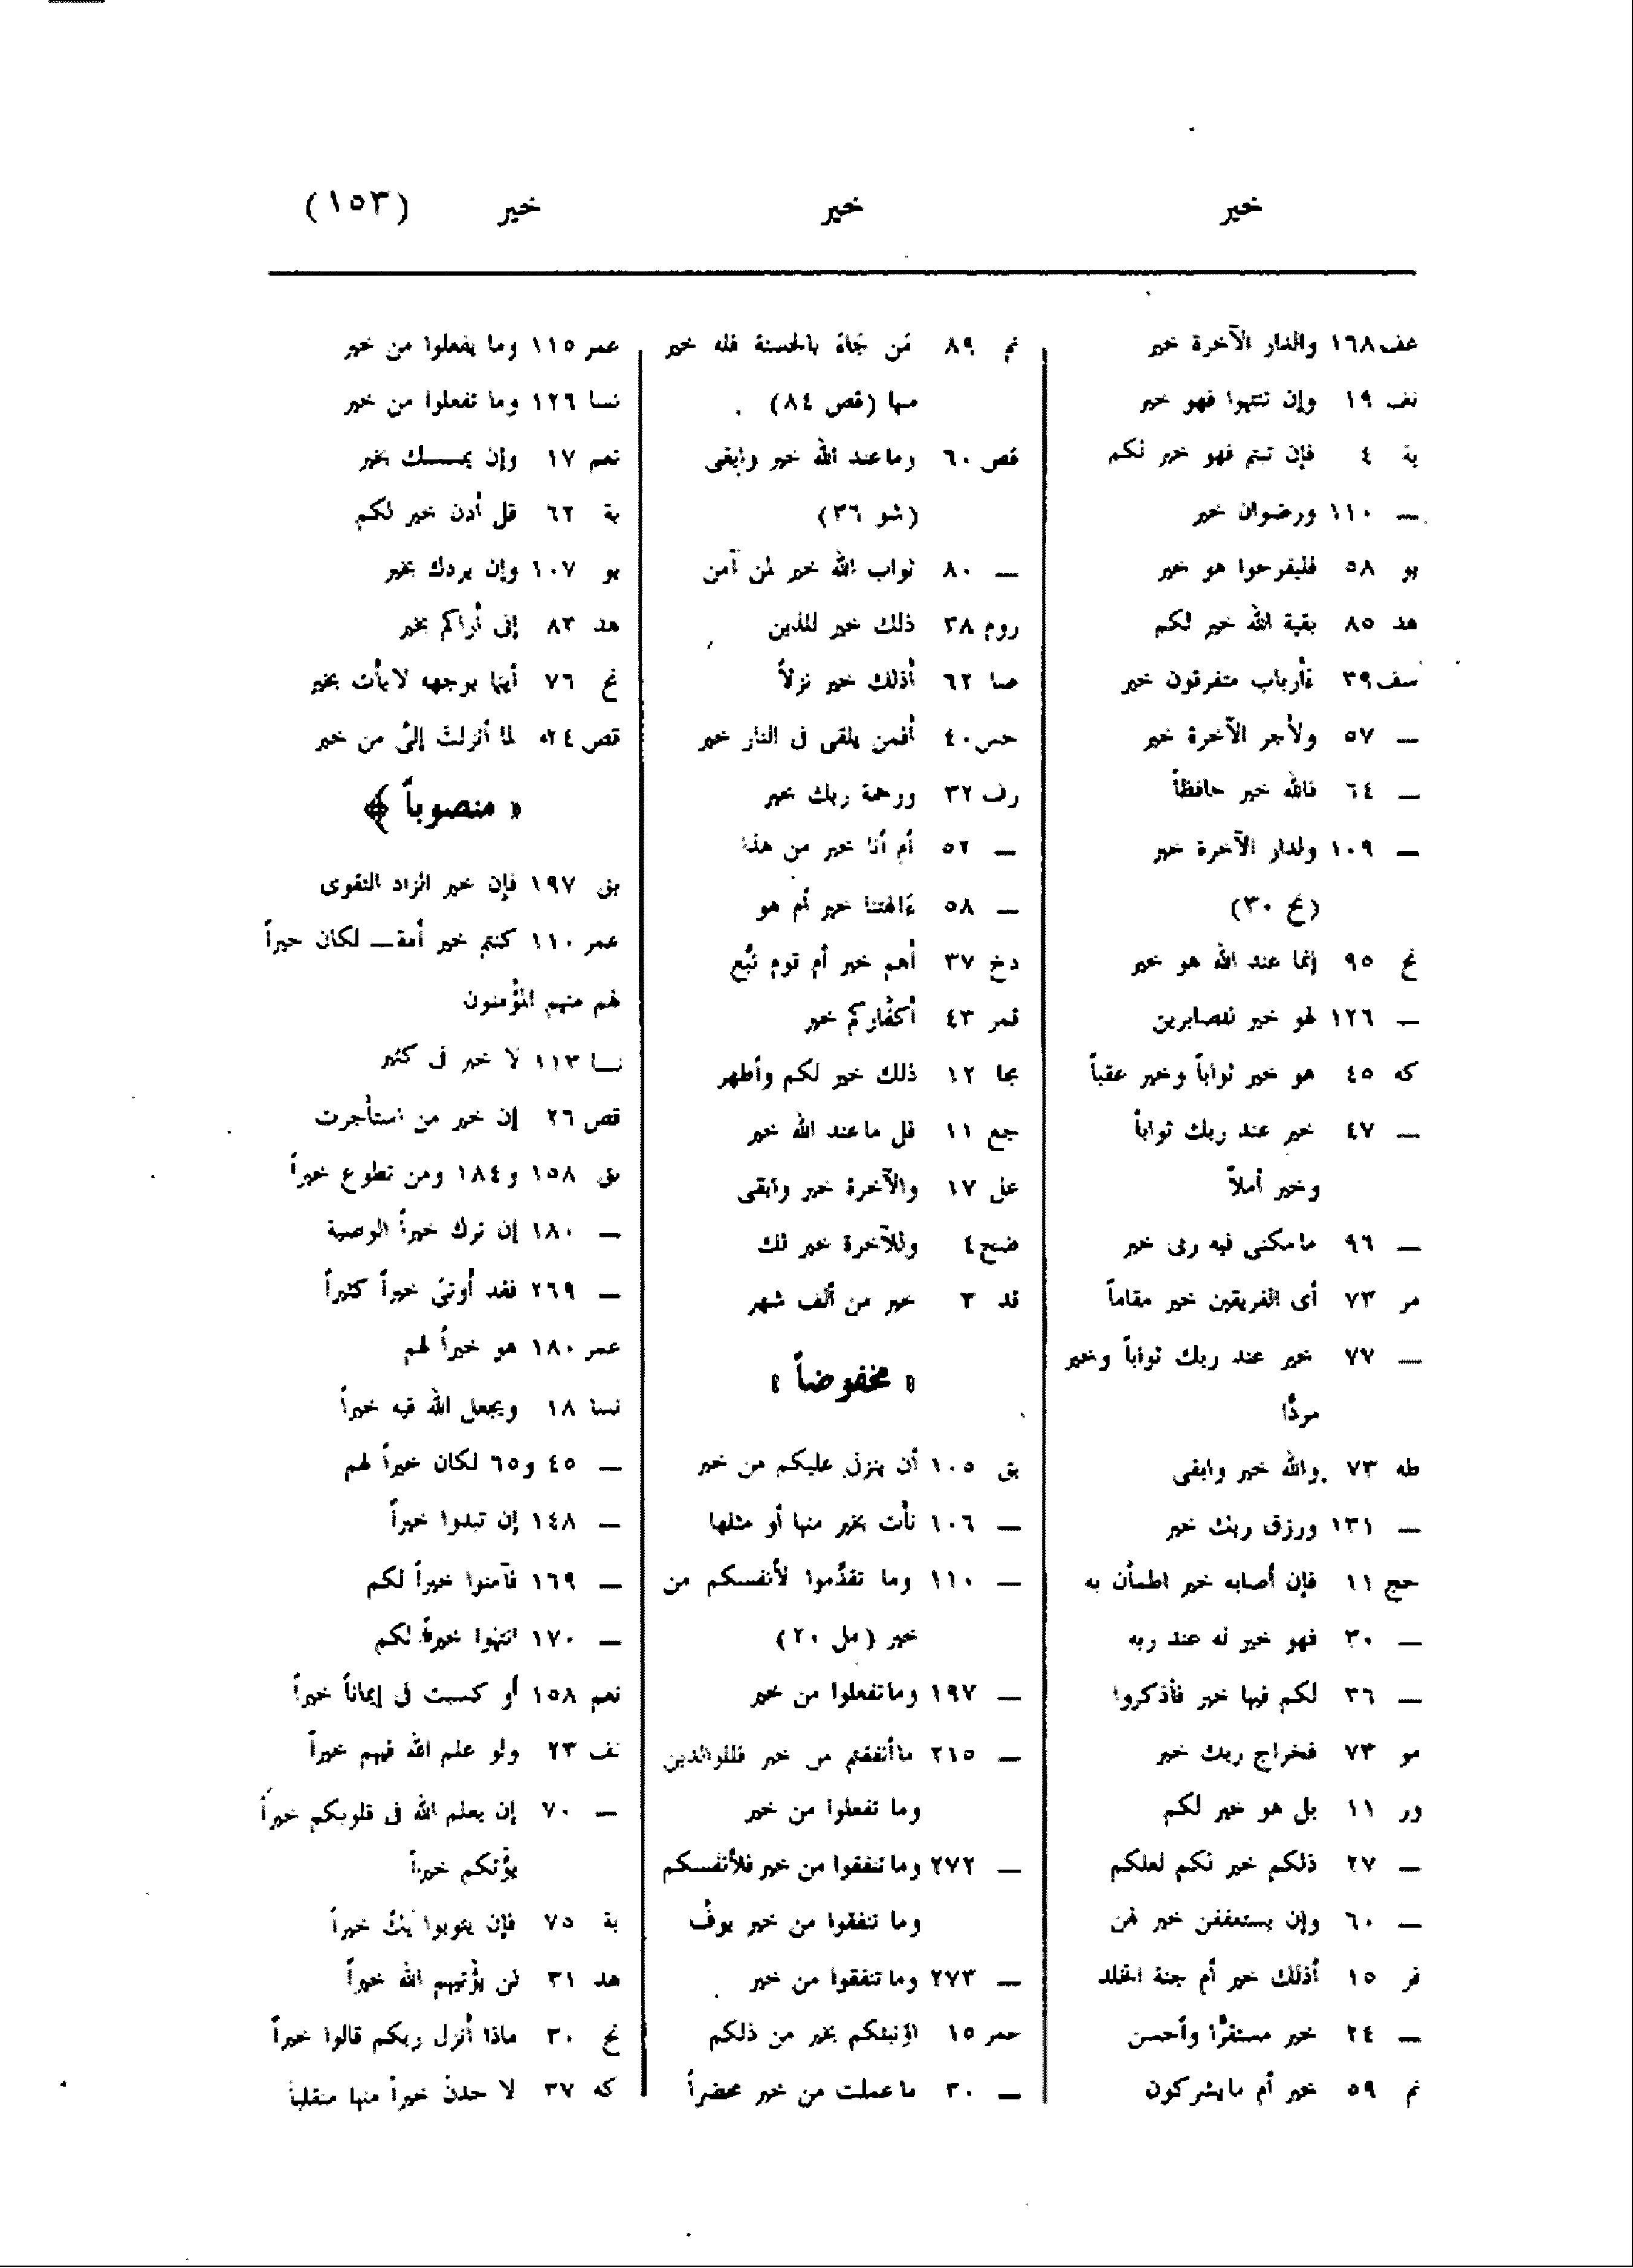 خير
خير
خير
(١٥٣)
عف ١٦٨ والدار الآخرة خير
نف ١٩ وإن تنتهوا فهو خير
بة ٤ فإن تبتم فهو خير لكم
— ١١٠ ورضوان خير
يو ٥٨ فليفرحوا هو خير
هد ٨٥ بقية الله خير لكم
سف ٣٩ ءأرباب متفرقون خير
— ٥٧ ولأجر الآخرة خير
— ٦٤ فالله خير حافظاً
— ١٠٩ ولدار الآخرة خير
(نح ٣٠)
نح ٩٥ إنما عند الله هو خير
— ١٢٦ لهو خير للصابرين
كه ٤٥ هو خير ثواباً وخير عقباً
— ٤٧ خير عند ربك ثواباً
وخير أملاً
— ٩٦ مامكنى فيه ربى خير
مر ٧٣ أى الفريقين خير مقاماً
— ٧٧ خير عند ربك ثواباً وخير
مردًّا
طه ٧٣ والله خير وابقى
— ١٣١ ورزق ربك خير
حج ١١ فإن أصابه خير اطمأن به
— ٣٠ فهو خير له عند ربه
— ٣٦ لكم فيها خير فأذكروا
مو ٧٣ فخراج ربك خير
ور ١١ بل هو خير لكم
— ٢٧ ذلكم خير لكم لعلكم
— ٦٠ وإن يستعففن خير لهن
فر ١٥ أذلك خير أم جنة الخلد
— ٢٤ خير مستقرًّا وأحسن
نم ٥٩ خير أم مايشركون
نم ٨٩ مَن جَاءَ بالحسنة فله خير
منها (قص ٨٤)
قص ٦٠ وماعند الله خير وابقى
(شو ٣٦)
— ٨٠ ثواب الله خير لمن آمن
روم ٣٨ ذلك خير للذين
صا ٦٢ أذلك خير نزلاً
حس ٤٠ أفمن يلقى فى النار خير
رف ٣٢ ورحمة ربك خير
— ٥٢ أم أنا خير من هذا
— ٥٨ ءَالهتنا خير أم هو
دخ ٣٧ أهم خير أم قوم تُبَّع
قمر ٤٣ أكفّاركم خير
مجا ١٢ ذلك خير لكم وأطهر
جع ١١ قل ماعند الله خير
عل ١٧ والآخرة خير وابقى
ضح ٤ وللآخرة خير لك
قد ٣ خير من ألف شهر
« مخفوضاً »
بق ١٠٥ أن ينزل عليكم من خير
— ١٠٦ نأت بخير منها أو مثلها
— ١١٠ وما تقدّموا لأنفسكم من
خير (مل ٢٠)
— ١٩٧ وماتفعلوا من خير
— ٢١٥ ماأنفقتم من خير فللوالدين
وما تفعلوا من خير
— ٢٧٢ وماتنفقوا من خير فلأنفسكم
وما تنفقوا من خير يوفّ
— ٢٧٣ وماتنفقوا من خير
عمر ١٥ اؤنبئكم بخير من ذلكم
— ٣٠ ماعملت من خير محضراً
عمر ١١٥ وما يفعلوا من خير
نسا ١٢٦ وما تفعلوا من خير
نعم ١٧ وإن يمسسك بخير
بة ٦٢ قل أذن خير لكم
يو ١٠٧ وإن يردك بخير
هد ٨٣ إنى أراكم بخير
نح ٧٦ أينما يوجهه لايأت بخير
قص ٢٤ لما أنزلت إلىَّ من خير
« منصوباً »
بق ١٩٧ فإن خير الزاد التقوى
عمر ١١٠ كنتم خير أمة — لكان خيراً
لهم منهم المؤمنون
نسا ١١٣ لا خير فى كثير
قص ٢٦ إن خير من استأجرت
بق ١٥٨ و١٨٤ ومن تطوع خيراً
— ١٨٠ إن ترك خيراً الوصية
— ٢٦٩ فقد أوتىَ خيراً كثيراً
عمر ١٨٠ هو خيراً لهم
نسا ١٨ ويجعل الله فيه خيراً
— ٤٥ و٦٥ لكان خيراً لهم
— ١٤٨ إن تبدوا خيراً
— ١٦٩ فآمنوا خيراً لكم
— ١٧٠ انتهوا خيراً لكم
نعم ١٥٨ أو كسبت فى إيماناً خيراً
نف ٢٣ ولو علم الله فيهم خيراً
— ٧٠ إن يعلم الله فى قلوبكم خيراً
يؤتكم خيراً
بة ٧٥ فإن يتوبوا يَكُ خيراً
هد ٣١ لن يؤتيهم الله خيراً
نح ٣٠ ماذا أنزل ربكم قالوا خيراً
كه ٣٧ لا جدنّ خيراً منها منقلبا